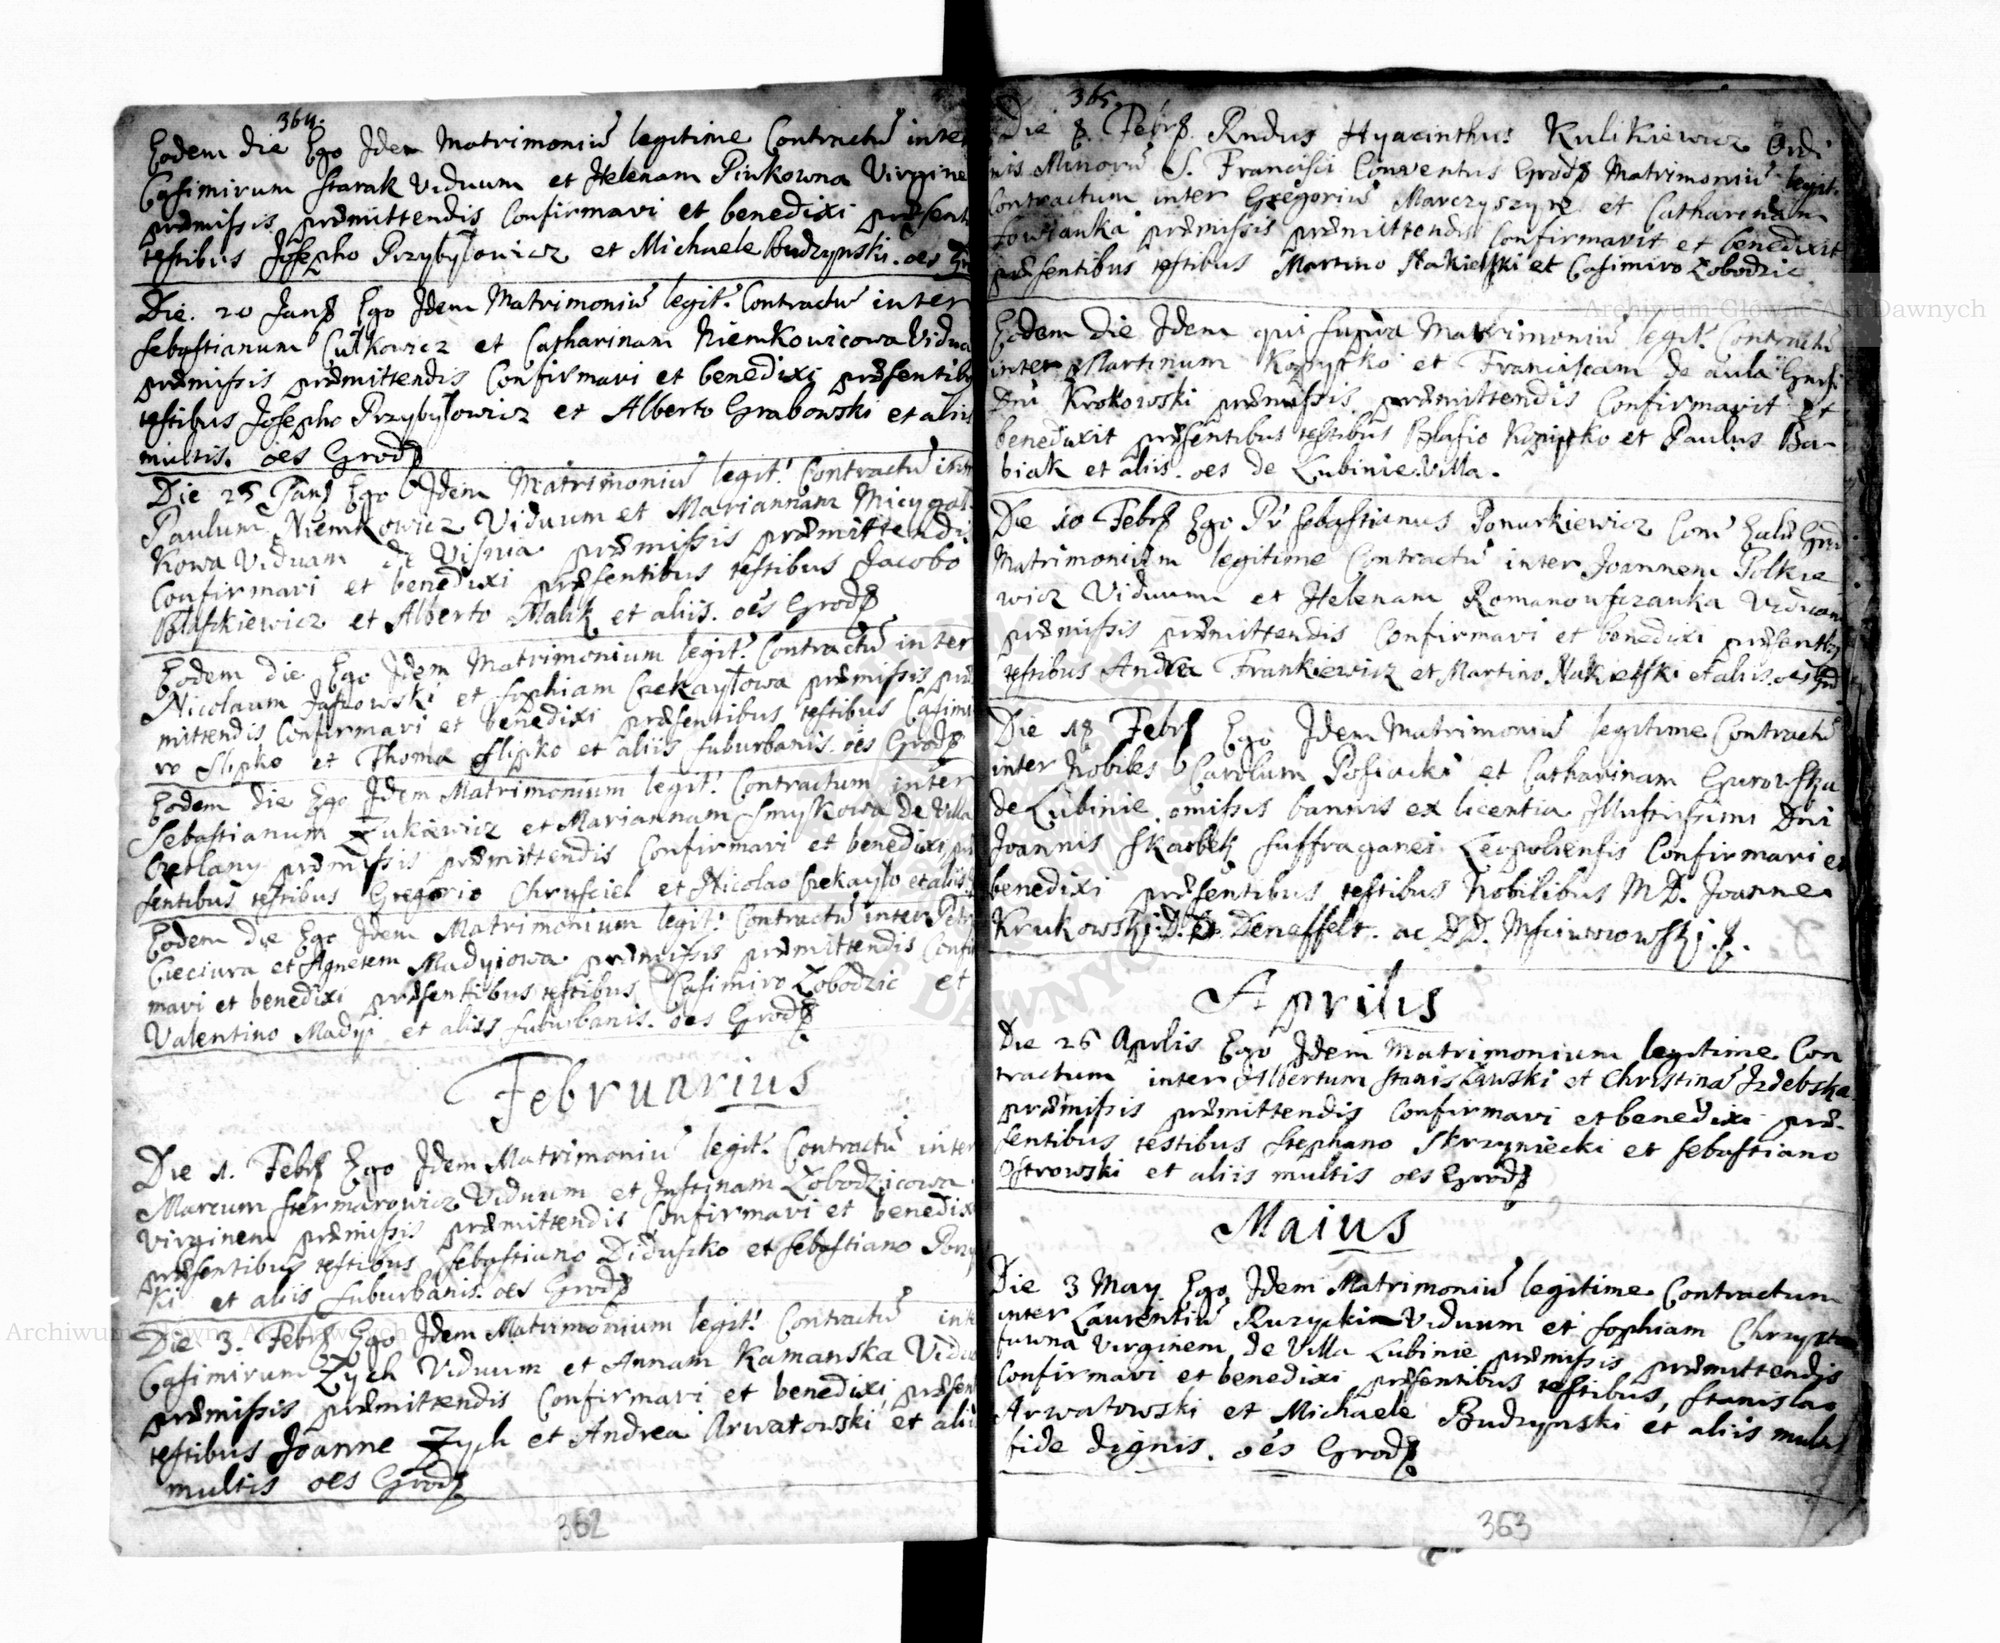 364.
Eodem die Ego Idem Matrimoniū legitime Contractū inter
Casimirum Starak Viduum et Helenam Pinkowna Virgine
præmissis præmittendis Confirmavi et benedixi præsent
testibus Josepho Przybyłowicz et Michaele Budzynski. oēs
Die. 20 Jan Ego Idem Matrimoniū legit. Contractū inter
Sebastianum Culkowicz et Catharinam Niemkowicowa Vidua
præmissis præmittendis Confirmavi et benedixi præsentibus
testibus Josepho Przybyłowicz et Alberto Grabowski et aliis
multis. oēs Grod
Die 25 Jan Ego Idem Matrimoniū legit. Contractū inter
Paulum Niemkowicz Viduum et Mariannam Micygał
kowa Viduam de Visnia præmissis præmittendis
Confirmavi et benedixi præsentibus testibus Jacobo
Błaszkiewicz et Alberto Malik et aliis. oēs Grod
Eodem die Ego Idem Matrimonium legit. Contractū inter
Nicolaum Jasłowski et Sophiam Czekayłowa præmissis præ
mittendis Confirmavi et benedixi præsentibus testibus Casimi
ro Slipko et Thoma Slipko et aliis suburbanis. oēs Grod
Eodem die Ego Idem Matrimonium legit. Contractum inter
Sebastianum Żukiewicz et Mariannam Smyskowa de Villa
Czerlany præmissis præmittendis Confirmavi et benedixi præ
sentibus testibus Gregorio Chrusciel et Nicolao Czekayło et aliis
Eodem die Ego Idem Matrimonium legit. Contractū inter Petr
Cieciura et Agnetem Madyiowa præmissis præmittendis Confir
mavi et benedixi præsentibus testibus Casimiro Łobodzic et
Valentino Madyi et aliis suburbanis. oes Grod
Februarius
Die 1. Febr Ego Idem Matrimoniū legit. Contractū inter
Marcum Stermarowicz Viduum et Justinam Łobodzicowa
Virginem præmissis præmittendis Confirmavi et benedixi
præsentibus testibus Sebastiano Diduszko et Sebastiano
ki et aliis suburbanis. oes Grod
Die 3. Febr Ego Idem Matrimonium legit. Contractū inte
Casimirum Zych Viduum et Annam Kamanska Vidua
præmissis præmittendis Confirmavi et benedixi præsen
testibus Joanne Zych et Andrea Arwatowski et aliis
multis oes Grod
362
365.
Die 8. Febr. Rndus Hyacinthus Kulikiewicz Ordi
nis Minorū S. Francisci Conventus Grod Matrimoniū legit.
Contractum inter Gregoriū Marczyszyn et Catharinam
præmissis præmittendis Confirmavit et benedixit
præsentibus testibus Martino Nakielski et Casimiro Łobodzic
Eodem Die Idem qui supra Matrimoniū legit. Contractū
inter Martinum Kozysko et Franciscam de aula
Dni Krokowski præmissis præmittendis Confirmavit et
benedixit præsentibus testibus Blasio et Paulus Ba-
biak et aliis. oes de Lubinie Villa.
Die 10 Febr Ego Pr Sebastianus Ponurkiewicz Com
Matrimonium legitime Contractū inter Joannem Polkie
wicz Viduum et Helenam Romanowszczanka Viduam
præmissis præmittendis Confirmavi et benedixi præsentbz
testibus Andrea Frankiewicz et Martino Nakielski et aliis. oēs
Die 18 Febr Ego Idem Matrimoniū legitime Contractū
inter Nobiles Carolum Posiacki et Catharinam Gurowska
de Lubinie omissis bannis ex licentia Illustrissimi Dni
Joannis Skarbek Suffraganei Leopoliensis Confirmavi et
benedixi præsentibus testibus Nobilibus M. D. Joanne
Krukowski. D. Denaffelt. ac DD. Msciwoiowski.
Aprilis
Die 26 Aprlis Ego Idem Matrimonium legitime Con
tractum inter Albertum Stanisławski et Christinā Izdebska
præmissis præmittendis Confirmavi et benedixi præ-
sentibus testibus Stephano Skrzyniecki et Sebastiano
Ostrowski et aliis multis oes Grod
Maius
Die 3 May Ego Idem Matrimoniū legitime Contractum
inter Laurentiū Ruzycki Viduum et Sophiam
Virginem de Villa Lubinie præmissis præmittendis
Confirmavi et benedixi præsentibus testibus, Stanislao
Arwatowski et Michaele Budzynski et aliis multis
fide dignis. oēs Grod
363
Archiwum Główne Akt Dawnych
Archiwum Główne Akt Dawnych